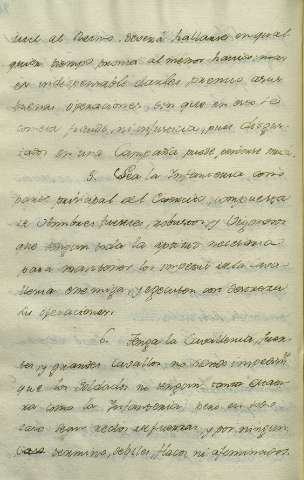 util al Reino deverá hallarse en qual
quier tiempo, pronta al menor haviso; mas
es indispensable darles premio a sus
buenas operaciones, sin que en esto se
cometa fraude, ni injusticia, pues disgus-
tados en una Campaña puede perderse mu.
5. Sea la Infanteria, como
parte principal del Exercito, compuesta
de Hombres fuertes, robustos, y dispuestos
que tengan toda la aptitud necesaria
para mantener los impetus de la Cava-
lleria enemiga, y executen con destreza
sus operaciones.
6. Tenga la Cavalleria, fuer-
tes y grandes Cavallos no siendo impedimto
que los Soldados no tengan tanta destre-
za como la Infanteria pero en todo
caso sean rectos de fuerzas, y por ningun
caso termino, debiles, flacos ni afeminados.